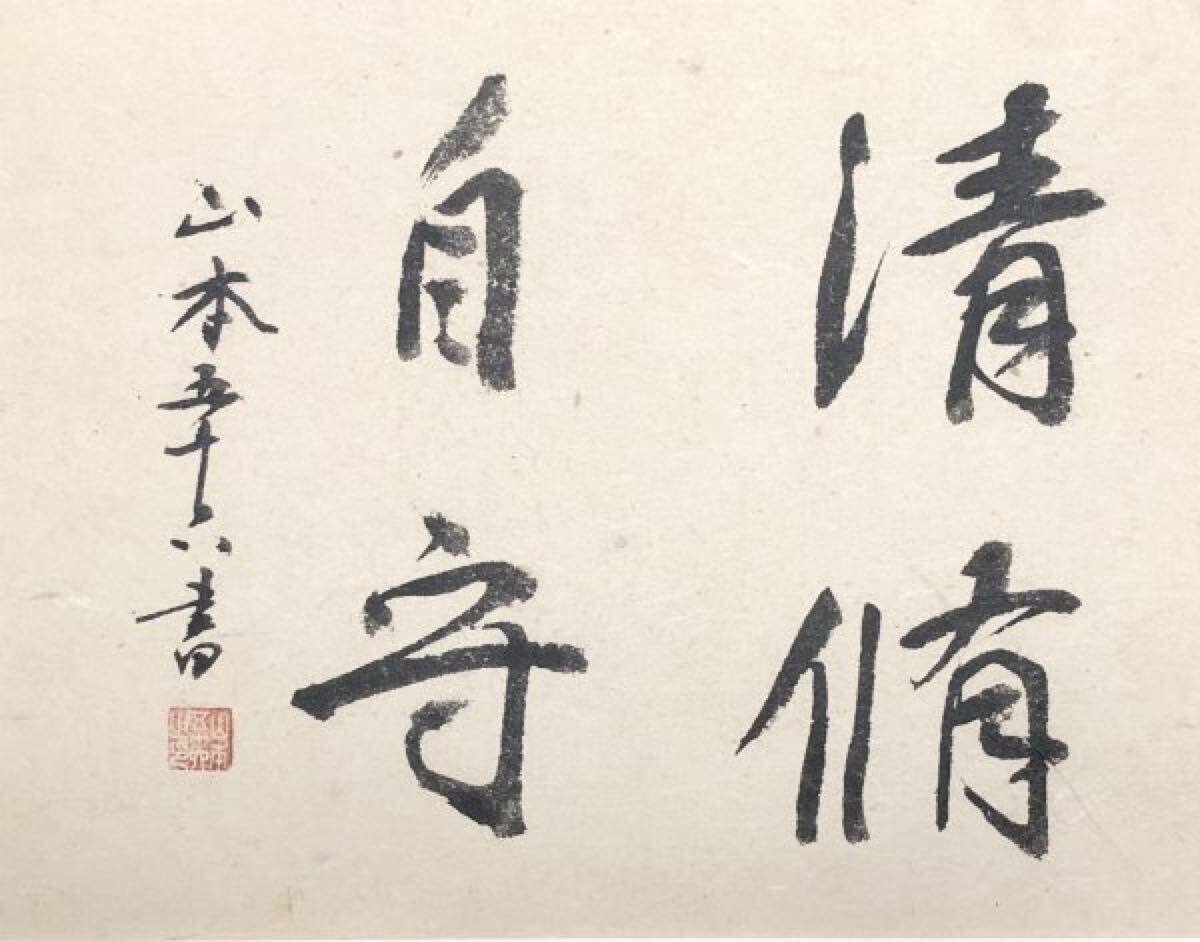 清脩
自守
山本五十六書